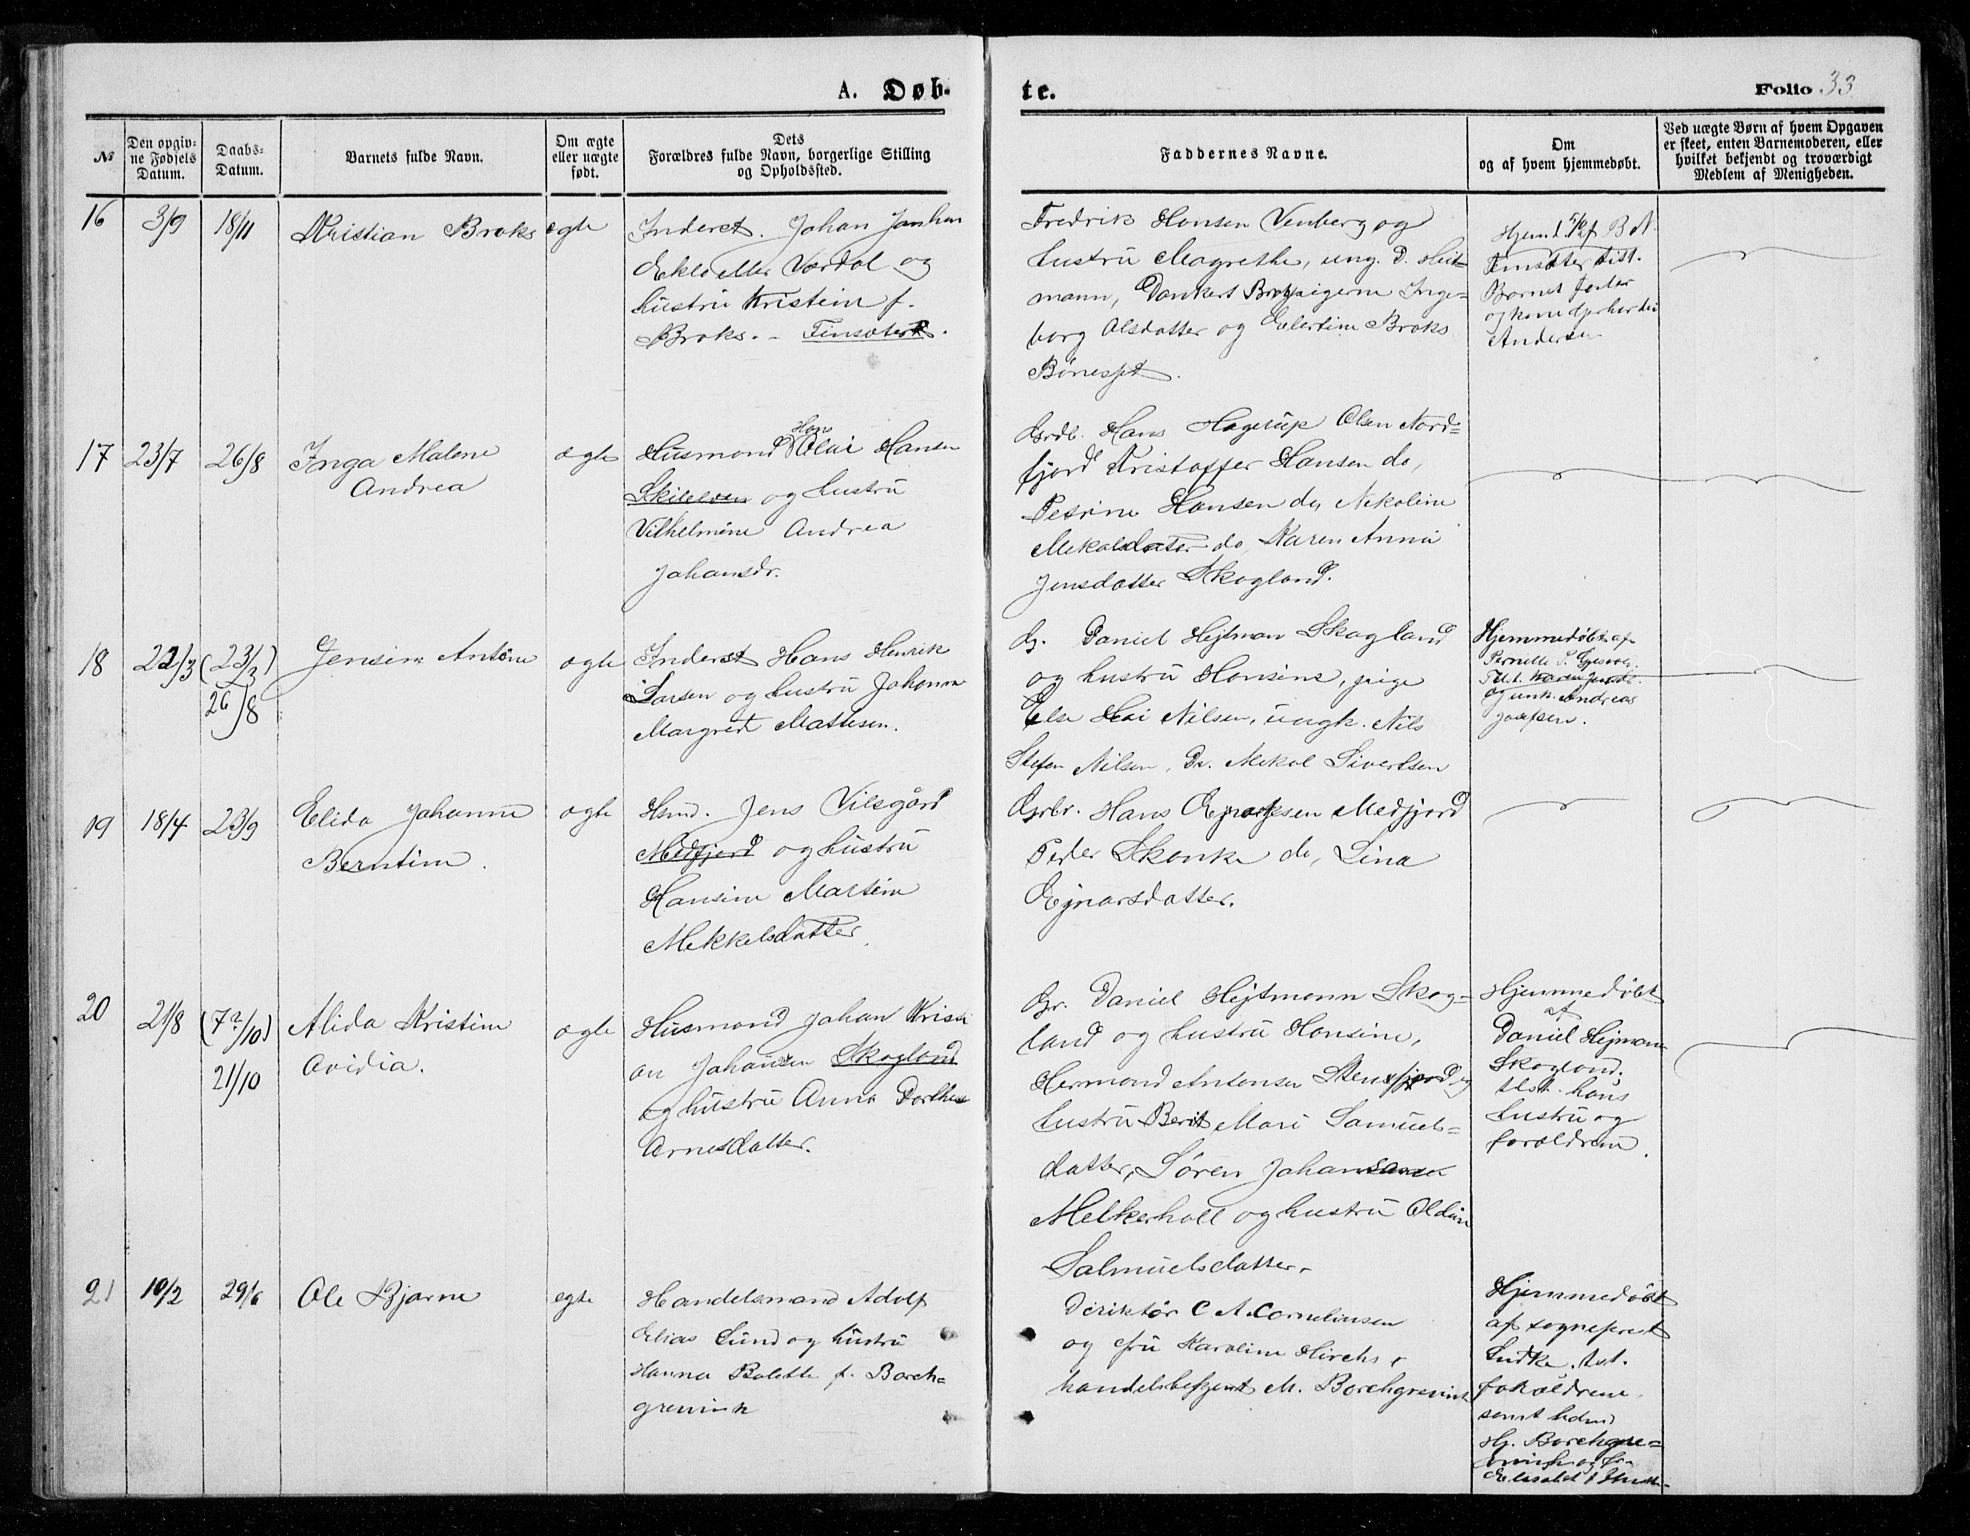 A. Døb-
te.
Folio 33
№
Den opgiv-
ne Fødsels
Datum.
Daabs-
Datum.
Barnets fulde Navn.
Om ægte
eller uægte
født.
Dets
Forældres fulde Navn, borgerlige Stilling
og Opholdssted.
Faddernes Navne.
Om
og af hvem hjemmedøbt.
Ved uægte Børn af hvem Opgaven
er skeet, enten Barnemoderen, eller
hvilket bekjendt og troværdigt
Medlem af Menigheden.
16
3/9
18/11
Kristian Broks
ægte
Inderst. Johan
og
hustru Kristein f.
Broks. - Finsæter.
Fredrik Hansen Venberg og
hustru Magrethe, ung. D. Heit-
mann, Dankert Broks pigerne Inge-
borg Olsdatter og Broks
Bønesset.
Hjemd. 5/9 af B. N.
Finsæter tilst.
Barnet foder
og kone
Andersen
17
23/7
26/8
Inga Malene
Andrea
ægte
Husmand Hans Olai Hansen
og hustru
Vilhelmine Andrea
Johansdr.
Grdb. Hans Hagerup Olsen Nord-
fjord Kristoffer Hansen do,
Petrine Hansen do, Nekoline
Mekalsdatter do, Karen Anna
Jensdatter Skogland.
18
22/3
(23/3)
26/8
Jensine Antone
ægte
Inderst Hans Henrik
Larsen og hustru Johanna
Margret Mathisen.
G. Daniel Hejtman Skogland
og hustru Hansine, pige
Else Nilsen, ungk. Nils
Stefen Nilsen, Mekal Sivertsen
Hjemmedøbt af
Pernille
Tilst. Karen
og unk. Andreas
19
18/4
23/9
Elida Johanne
Berntine.
ægte
Hsmd. Jens Vilsgård
Medfjord og hustru
Hansine Martine
Mekkelsdatter.
Grbr. Hans Ejnarsen Medfjord
Peder Skonke do, Lina
Ejnarsdatter.
20
21/8
(7?/10)
21/10
Alida Kristine
Ovidia.
ægte
Husmand Johan Kristi
an Johansen Skogland
og hustru Anna Dorthea
Arnesdatter.
Gr. Daniel Hejtmann Skog-
land og hustru Hansine,
Hermand Antonsen Stensfjord og
hustru Berit Mari Samuels-
datter, Søren Johansen
og hustru Oldine
Salmuelsdatter.
Hjemmedøbt
af
Daniel Hejman
Skogland.
tilst. hans
hustru og
forældrene.
21
10/2
29/6
Ole Bjarne
egte
Handelsmand Adolf
Elias Lund og hustru
Hanna Bolette f. Borch-
grevink
Diriktør C. A. Cornelinsen
og fru Karoline Hirchs,
handelsbetjent M. Borchgrevink
Hjemmedøbt
af sogneprest
Lydke. tilst.
forældrene
samt
Hj. Borchgre-
vink og fr.